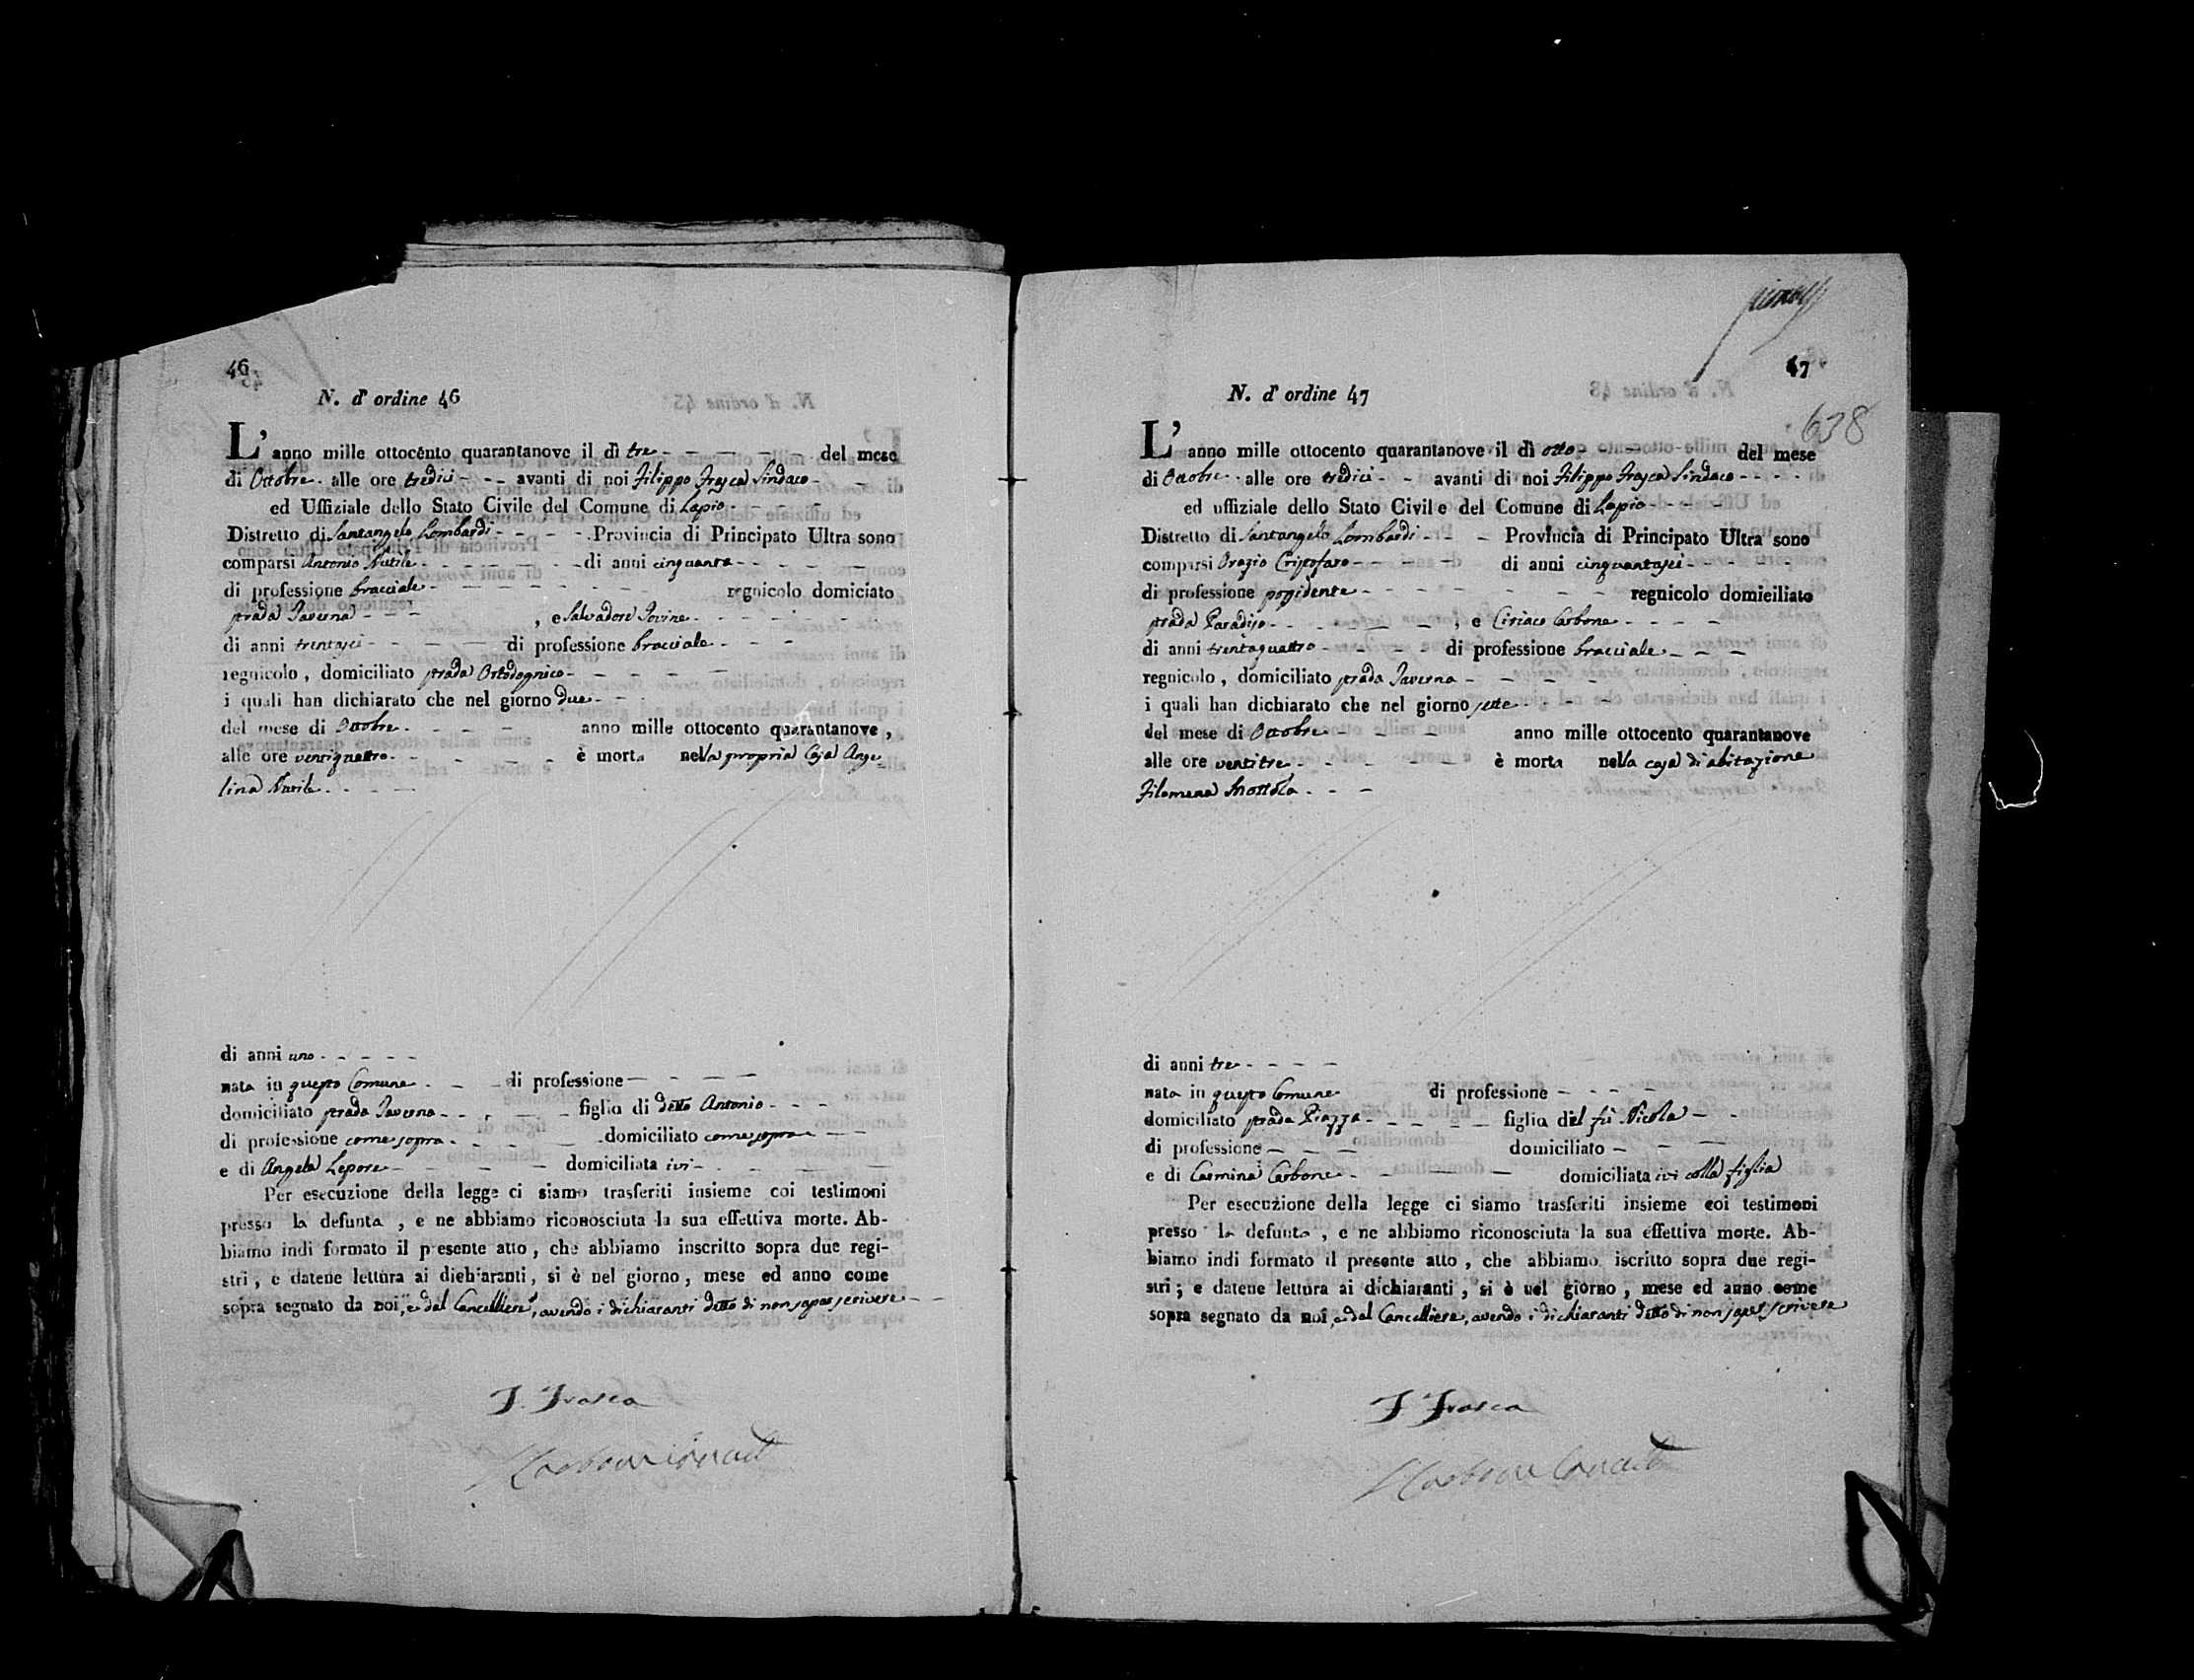 46
N. d' ordine 46
L' anno mille ottocento quarantanove il dì tre del mese
di Ottobre alle ore tredici avanti di noi Filippo Frasca Sindaco
ed Uffiziale dello Stato Civile del Comune di Lapio
Distretto di Santangelo Lombardi Provincia di Principato Ultra sono
comparsi Antonio Nutile di anni cinquanta
di professione bracciale regnicolo domiciato
strada Taverna , e Salvadore Iovine
di anni trentasei di professione bracciale
regnicolo , domiciliato strada Ortodognico
i quali han dichiarato che nel giorno due
del mese di Ottobre anno mille ottocento quarantanove ,
alle ore ventiquattro è morta nella propria Casa Ange
lina Nutile
di anni uno
nata in questo Comune di professione
domiciliato strada Taverna figlia di detto Antonio
di professione come sopra domiciliato come sopra
e di Angela Lepore domiciliata ivi
Per esecuzione della legge ci siamo trasferiti insieme coi testimoni
presso la defunta , e ne abbiamo riconosciuta la sua effettiva morte. Ab-
biamo indi formato il presente atto , che abbiamo inscritto sopra due regi-
stri , e datene lettura ai dichiaranti, si è nel giorno, mese ed anno come
sopra segnato da noi, e dal Cancelliere, avendo i dichiaranti detto di non saper scrivere
F. Frasca
47
638
N. d' ordine 47
L' anno mille ottocento quarantanove il dì otto del mese
di Ottobre alle ore tredici avanti di noi Filippo Frasca Sindaco
ed uffiziale dello Stato Civile del Comune di Lapio
Distretto di Santangelo Lombardi Provincia di Principato Ultra sono
comparsi Orazio Cristofaro di anni cinquantasei
di professione possidente regnicolo domiciliato
strada Paradiso , e Ciriaco Carbone
di anni trentaquattro di professione bracciale
regnicolo , domiciliato strada Taverna
i quali han dichiarato che nel giorno sette
del mese di Ottobre anno mille ottocento quarantanove
alle ore ventitre è morta nella casa di abitazione
Filomena Mottola
di anni tre
nata in questo Comune di professione
domiciliato strada Piazza figlia del fù Nicola
di professione domiciliato
e di Carmina Carbone domiciliata ivi colla figlia
Per esecuzione della legge ci siamo trasferiti insieme coi testimoni
presso la defunta , e ne abbiamo riconosciuta la sua effettiva morte. Ab-
biamo indi formato il presente atto , che abbiamo iscritto sopra due regi-
stri ; e datene lettura ai dichiaranti , si è nel giorno , mese ed anno come
sopra segnato da noi, e dal Cancelliere, avendo i dichiaranti detto di non saper scrivere
F. Frasca